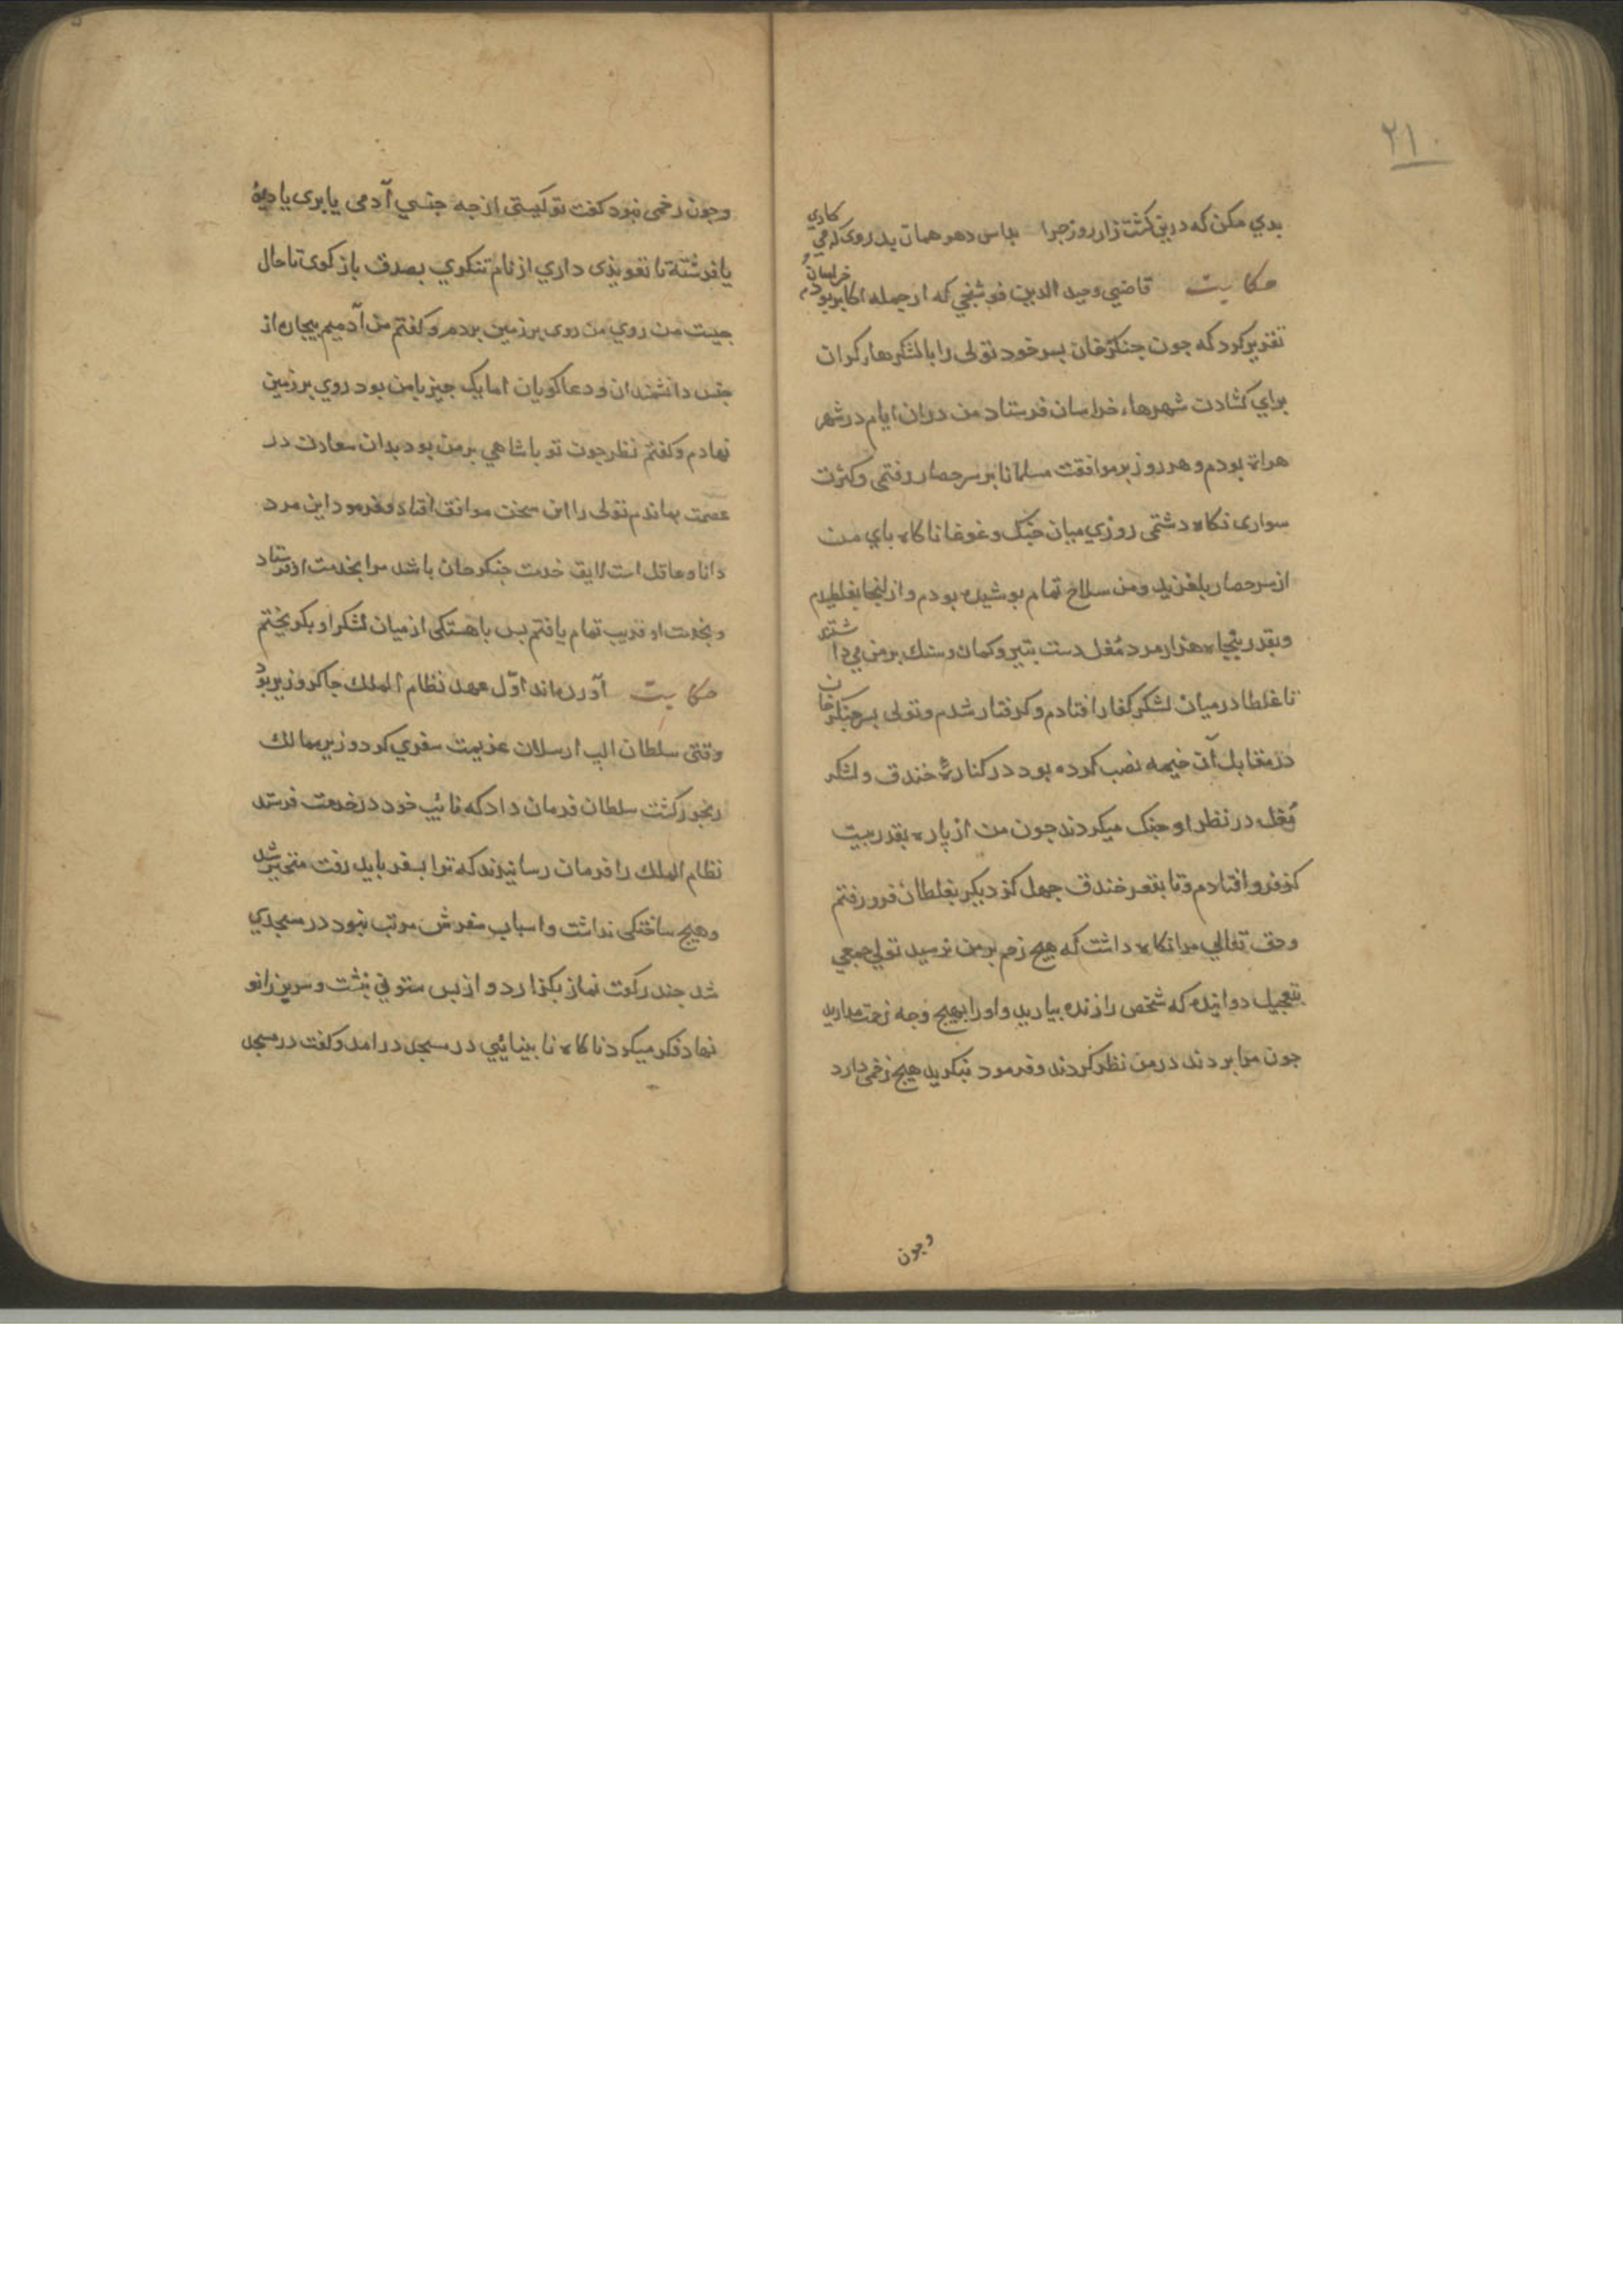 ٢١٠
بدي مكن كه درين كشت زار روز جزا بداس دهر همان بدروى كه مي كاري
حكايت قاضي وحيد الدين فوشنجي كه از جمله اكابر خراسان بود
تقرير كرد كه جون جنكزخان بسر خود تولى را با لشكرهاء كران
براي كشادن شهرهاء خراسان فرستاد من دران ايام در شهر
هراة بودم و هر روز بر موافقت مسلمانا بر سر حصار رفتمى و كثرت
سوارى نكاه دشتمى روزي ميان جنك و غوغا ناكاه باي من
از سر حصار بلغزيد و من سلاح تمام بوشيده بودم و از انجا بغلطيدم
و بقدر بنجاه هزار مرد مغل دست بتير و كمان و سنك بر من مي داشتند
تا غلطا درميان لشكر كفار افتادم و كرفتار شدم و تولى بسر جنكزخان
در مقابل آن خيمه نصب كرده بود در كنارهٔ خندق و لشكر
مغل در نظر او جنك ميكردند جون من از باره بقدر بيست
كز فرو افتادم و تا بقعر خندق جهل كز ديكر بغلطان فرو رفتم
و حق تعالي مرا نكاه داشت كه هيج زخم بر من نرسيد تولي جمعي
بتعجيل دوانيده كه شخص را زنده بياريد و او را بهيج وجه زحمت مداريد
جون مرا بردند در من نظر كردند و فرمود بنكريد هيج زخمى دارد
وجون
وجون زخمى نبود كفت تو كيستى از جه جنسي آدمى يا برى يا ديوۀ
يا فرشتۀ تا تعويذى داري از نام تنكري بصدق باز كوى تا حال
جيست من روي من روى بر زمين بردم و كفتم من آدميم بيجاره از
جنس دانشمندان و دعاكويان اما يك جيز با من بود روي بر زمين
نهادم و كفتم نظر جون تو باشاهي بر من بود بدان سعادت در
عصمت بماندم تولى را اين سخن موافق افتاد و فرمود اين مرد
دانا و عاقل است لايق خدمت جنكزخان باشد مرا بخدمت او فرستاد
و بخدمت او قربت تمام يافتم بس باهستكى از ميان لشكر او بكريختم
حكايت آورده‌اند اوّل عهد نظام الملك جاكر وزير بود
وقتى سلطان الب ارسلان عزيمت سفري كرد و زير ممالك
رنجور كشت سلطان فرمان داد كه نائب خود در خدمت فرستد
نظام الملك را فرمان رسانيدند كه ترا بسفر بايد رفت متحير شد
و هيج ساختكى نداشت و اسباب سفرش مرتب نبود در مسجدي
شد جند ركعت نماز بكزارد و از بس ستوني بنشت و سر بر زانو
نهاد فكر ميكرد ناكاه نابينائيي در مسجد در امد و كفت در مسجد